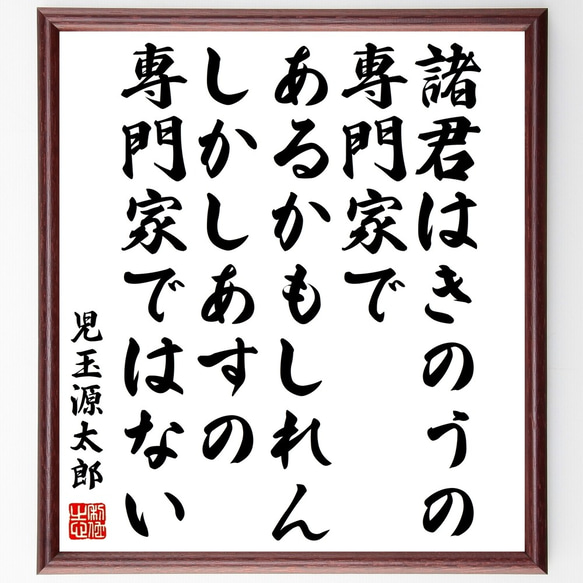 諸君はきのうの
専門家で
あるかもしれん
しかしあすの
専門家ではない
児玉源太郎